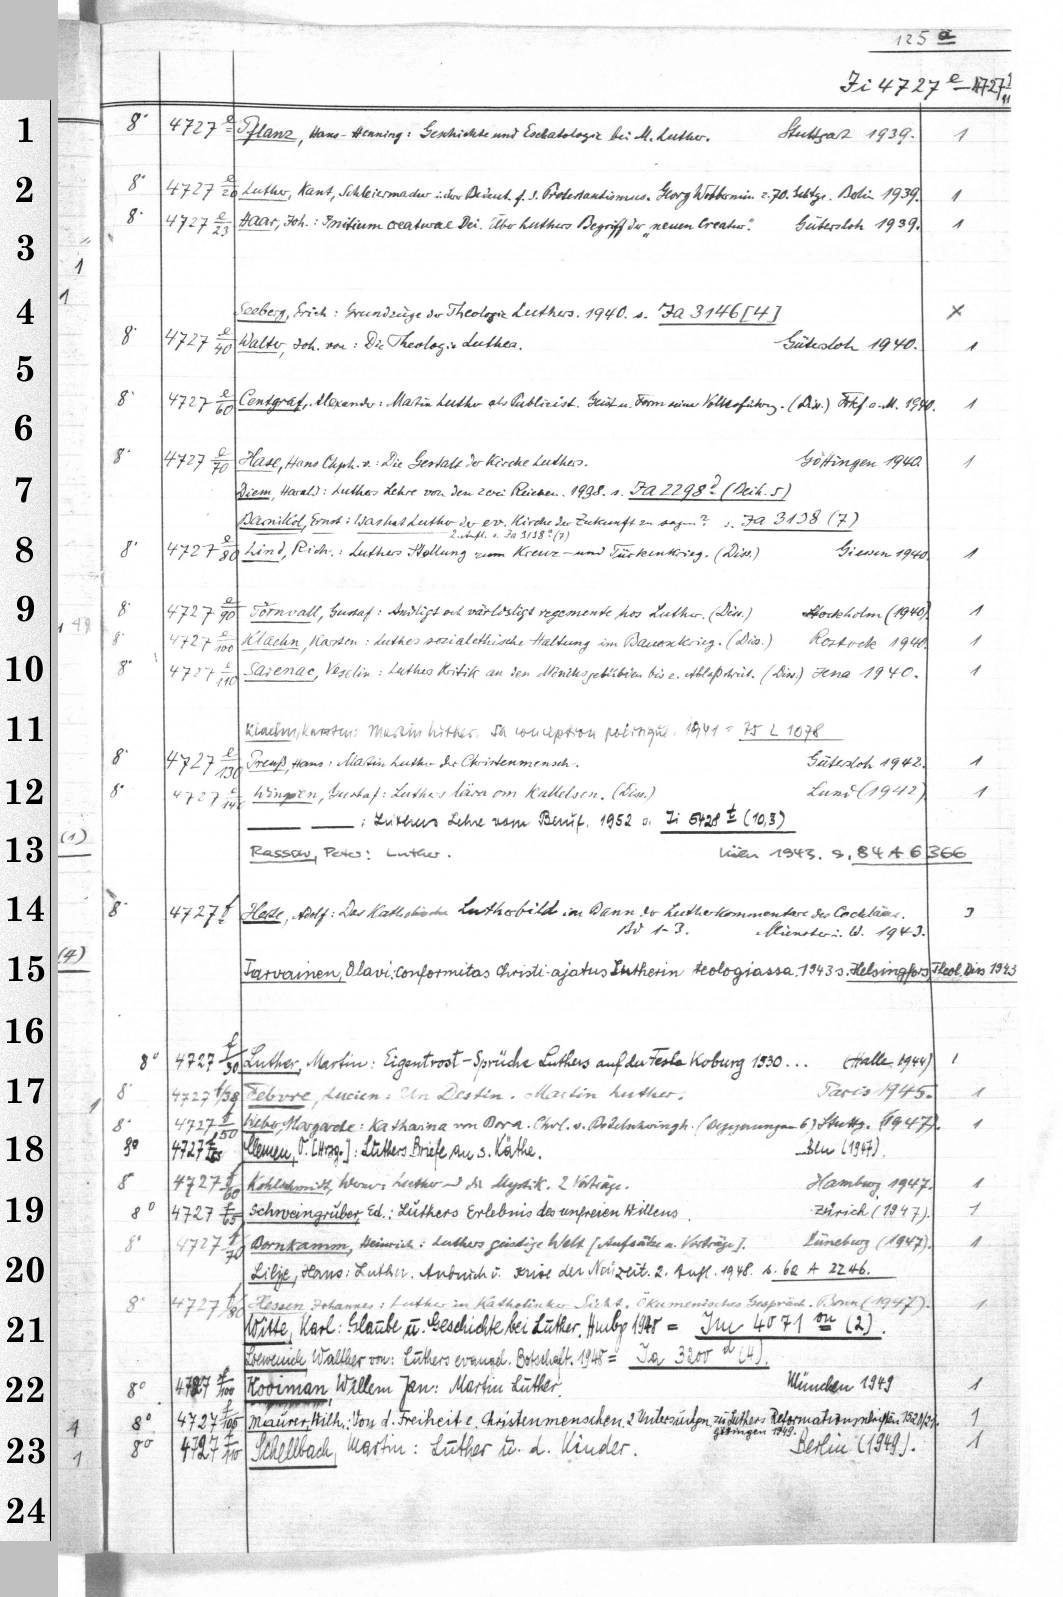 125 a
Ji 4727 e – 4727
1
8° 4727 e Pflanz, Hans-Henning: Geschichte und Eschatologie bei M. Luther. Stuttgart 1939. 1
2
8° 4727 e/20 Luther, Kant, Schleiermacher in ihrer Bedeut. f. d. Protestantismus. Georg Wobbermin z. 70. Gebtge. Berlin 1939. 1
8° 4727 e/23 Haar, Joh.: Initium creaturae Dei. Über Luthers Begriff der „neuen Creatur". Gütersloh 1939. 1
3
1
1
4
Seeberg, Erich: Grundzüge der Theologie Luthers. 1940. s. Ja 3146 [4] x
8° 4727 e/40 Walter, Joh. von: Die Theologie Luthers. Gütersloh 1940. 1
5
8° 4727 e/60 Centgraf, Alexander: Martin Luther als Publizist. Geist u. Form seiner Volksführung. (Diss.) Frkf. a. M. 1940. 1
6
8° 4727 e/70 Hase, Hans Chph. v.: Die Gestalt der Kirche Luthers. Göttingen 1940. 1
7
Diem, Harald: Luthers Lehre von den zwei Reichen. 1938. s. Ja 2298 (Beih. 5)
Barnikol, Ernst: Was hat Luther der ev. Kirche der Zukunft zu sagen? s. Ja 3138 (7)
2. Aufl. s. Ja 3138 a (7)
8
8° 4727 e/80 Lind, Rich.: Luthers Stellung zum Kreuz- und Türkenkrieg. (Diss.) Giessen 1940. 1
9
8° 4727 e/90 Törnvall, Gustaf: Andligt och världsligt regemente hos Luther. (Diss.) Stockholm (1940). 1
8° 4727 e/100 Klaehn, Karsten: Luthers sozialethische Haltung im Bauernkrieg. (Diss.) Rostock 1940. 1
10
8° 4727 e/110 Sarenac, Veselin: Luthers Kritik an den Mönchsgelübden bis z. Ablaßstreit. (Diss.) Jena 1940. 1
11
Klaehn, Karsten: Martin Luther. Sa conception politique. 1941 = 75 L 1078
8° 4727 e/130 Preuß, Hans: Martin Luther der Christenmensch. Gütersloh 1942. 1
12
8° 4727 e/140 Wingren, Gustaf: Luthers lära om kallelsen. (Diss.) Lund (1942) 1
—— ——: Luthers Lehre vom Beruf. 1952 s. Ji 5428 t (10,3)
(1)
13
Rassow, Peter: Luther. Köln 1943. s. 84 A 6366
14
8° 4727 f Herte, Adolf: Das Katholische Lutherbild im Bann der Lutherkommentare des Cochläus. 3
Bd 1-3. Münster i. W. 1943.
(4)
15
Tarvainen, Olavi: Conformitas Christi-ajatus Lutherin teologiassa. 1943 s. Helsingfors Theol. Diss 1943
16
8° 4727 f/30 Luther, Martin: Eigentrost-Sprüche Luthers auf der Feste Koburg 1530... (Halle 1944) 1
17
8° 4727 f/38 Febvre, Lucien: Un Destin. Martin Luther. Paris 1945. 1
8° 4727 f/50 Weber, Margarete: Katharina von Bora. Chrl. v. Bodelschwingh. (Begegnungen 6) Stuttg. (1947). 1
18
8° 4727 f/55 Clemen, O. [Hrsg.]: Luthers Briefe an s. Käthe. Bln (1947).
8° 4727 f/60 Kohlschmidt, Werner: Luther und die Mystik. 2 Vorträge. Hamburg 1947. 1
19
8° 4727 f/65 Schweingruber, Ed.: Luthers Erlebnis des unfreien Willens. Zürich (1947). 1
8° 4727 f/70 Bornkamm, Heinrich: Luthers geistige Welt [Aufsätze u. Vorträge]. Lüneburg (1947). 1
20
Lilje, Hans: Luther. Anbruch u. Krise der Neuzeit. 2. Aufl. 1948. s. 62 A 2246.
8° 4727 f/80 Hessen, Johannes: Luther in Katholischer Sicht. Ökumenisches Gespräch. Bonn (1947). 1
21
Witte, Karl: Glaube u. Geschichte bei Luther, Hmbg 1948 = Jm 4071 (2).
Loewenich, Walther von: Luthers evangel. Botschaft. 1948 = Ja 3200 d (4).
22
8° 4727 f/100 Kooiman, Willem Jan: Martin Luther. München 1949 1
8° 4727 f/105 Maurer, Wilh.: Von d. Freiheit e. Christenmenschen. 2 Untersuchgn. zu Luthers Reformationsschriften 1520/21. 1
Göttingen 1949.
23
8° 4727 f/110 Schellbach, Martin: Luther u. d. Kinder. Berlin (1949). 1
24